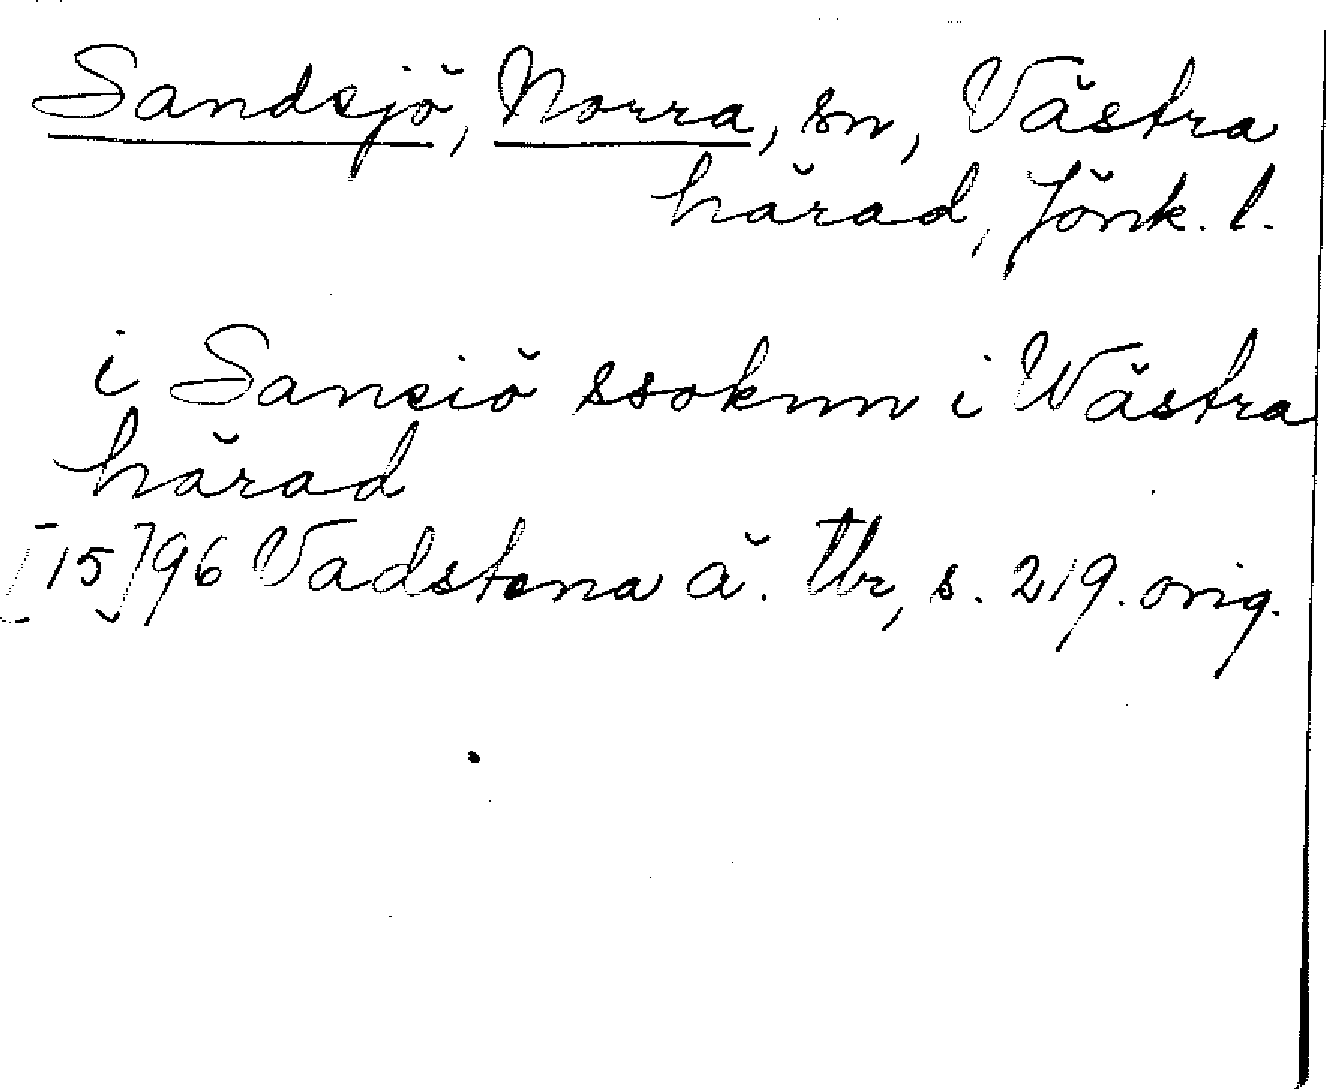 Sandsjö, Norra, sn, Västra
härad, Jönk. l.
i Sansiö ssoknn i Wästra
härad
[15]96 Vadstena ä. Tbr, s. 219. orig.